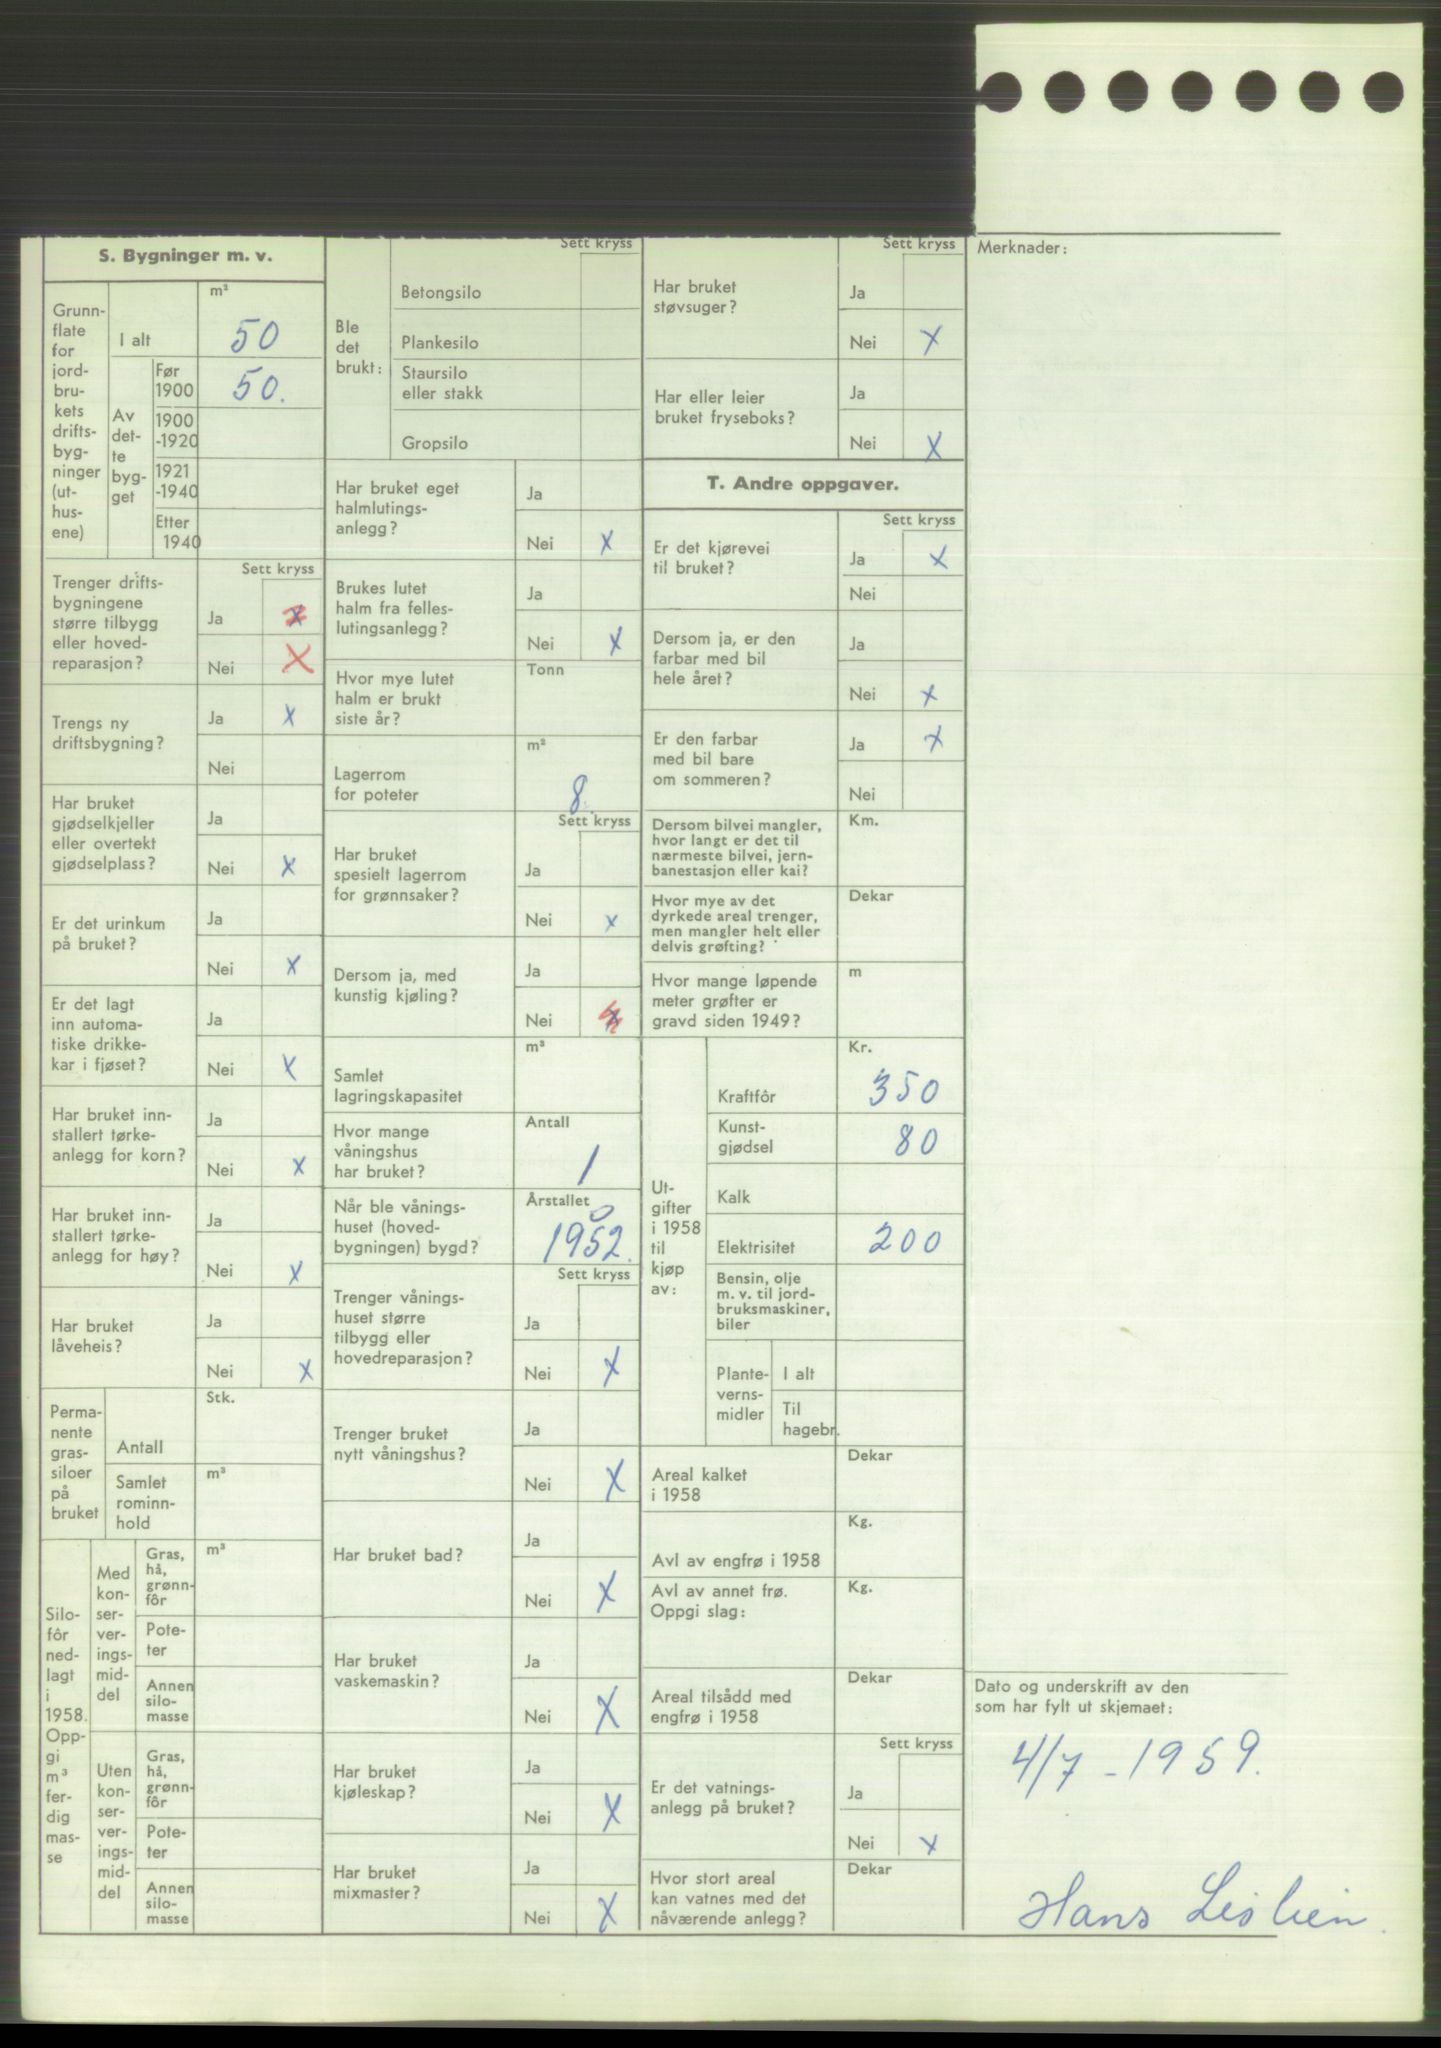 S. Bygninger m. v.
Grunn-
flate
for
jord-
bru-
kets
drifts-
byg-
ninger
(ut-
hus-
ene)
I alt
m²
50
Av
det-
te
byg-
get
Før
1900
50.
1900
-1920
1921
-1940
Etter
1940
Sett kryss
Trenger drifts-
bygningene
større tilbygg
eller hoved-
reparasjon?
Ja x
Nei X
Trengs ny
driftsbygning?
Ja x
Nei
Har bruket
gjødselkjeller
eller overtekt
gjødselplass?
Ja
Nei x
Er det urinkum
på bruket?
Ja
Nei x
Er det lagt
inn automa-
tiske drikke-
kar i fjøset?
Ja
Nei x
Har bruket inn-
stallert tørke-
anlegg for korn?
Ja
Nei x
Har bruket inn-
stallert tørke-
anlegg for høy?
Ja
Nei x
Har bruket
låveheis?
Ja
Nei x
Perma-
nente
gras-
siloer
på
bruket
Antall
Stk.
Samlet
rominn-
hold
m³
Silo-
fôr
ned-
lagt
i
1958.
Opp-
gi
m³
fer-
dig
mas-
se
Med
kon-
ser-
ver-
ings-
mid-
del
Gras,
hå,
grønn-
fôr
m³
Pote-
ter
Annen
silo-
masse
Uten
kon-
ser-
ver-
ings-
mid-
del
Gras,
hå,
grønn-
fôr
Pote-
ter
Annen
silo-
masse
Sett kryss
Ble
det
brukt:
Betongsilo
Plankesilo
Staursilo
eller stakk
Gropsilo
Har bruket eget
halmlutings-
anlegg?
Ja
Nei x
Brukes lutet
halm fra felles-
lutingsanlegg?
Ja
Nei x
Hvor mye lutet
halm er brukt
siste år?
Tonn
Lagerrom
for poteter
m²
8.
Sett kryss
Har bruket
spesielt lagerrom
for grønnsaker?
Ja
Nei x
Dersom ja, med
kunstig kjøling?
Ja
Nei x
Samlet
lagringskapasitet
m³
Hvor mange
våningshus
har bruket?
Antall
1
Når ble vånings-
huset (hoved-
bygningen) bygd?
Årstallet
0
1952.
Sett kryss
Trenger vånings-
huset større
tilbygg eller
hovedreparasjon?
Ja
Nei X
Trenger bruket
nytt våningshus?
Ja
Nei X
Har bruket bad?
Ja
Nei X
Har bruket
vaskemaskin?
Ja
Nei X
Har bruket
kjøleskap?
Ja
Nei X
Har bruket
mixmaster?
Ja
Nei X
Sett kryss
Har bruket
støvsuger?
Ja
Nei x
Har eller leier
bruket fryseboks?
Ja
Nei X
T. Andre oppgaver.
Sett kryss
Er det kjørevei
til bruket?
Ja x
Nei
Dersom ja, er den
farbar med bil
hele året?
Ja
Nei x
Er den farbar
med bil bare
om sommeren?
Ja x
Nei
Dersom bilvei mangler,
hvor langt er det til
nærmeste bilvei, jern-
banestasjon eller kai?
Km.
Hvor mye av det
dyrkede areal trenger,
men mangler helt eller
delvis grøfting?
Dekar
Hvor mange løpende
meter grøfter er
gravd siden 1949?
m
Ut-
gifter
i 1958
til
kjøp
av:
Kr.
Kraftfôr 350
Kunst-
gjødsel 80
Kalk
Elektrisitet 200
Bensin, olje
m. v. til jord-
bruksmaskiner,
biler
Plante-
verns-
midler
I alt
Til
hagebr.
Areal kalket
i 1958
Dekar
Avl av engfrø i 1958
Kg.
Avl av annet frø.
Oppgi slag:
Kg.
Areal tilsådd med
engfrø i 1958
Dekar
Sett kryss
Er det vatnings-
anlegg på bruket?
Ja
Nei x
Hvor stort areal
kan vatnes med det
nåværende anlegg?
Dekar
Merknader:
Dato og underskrift av den
som har fylt ut skjemaet:
4/7 - 1959.
Hans Leslien.